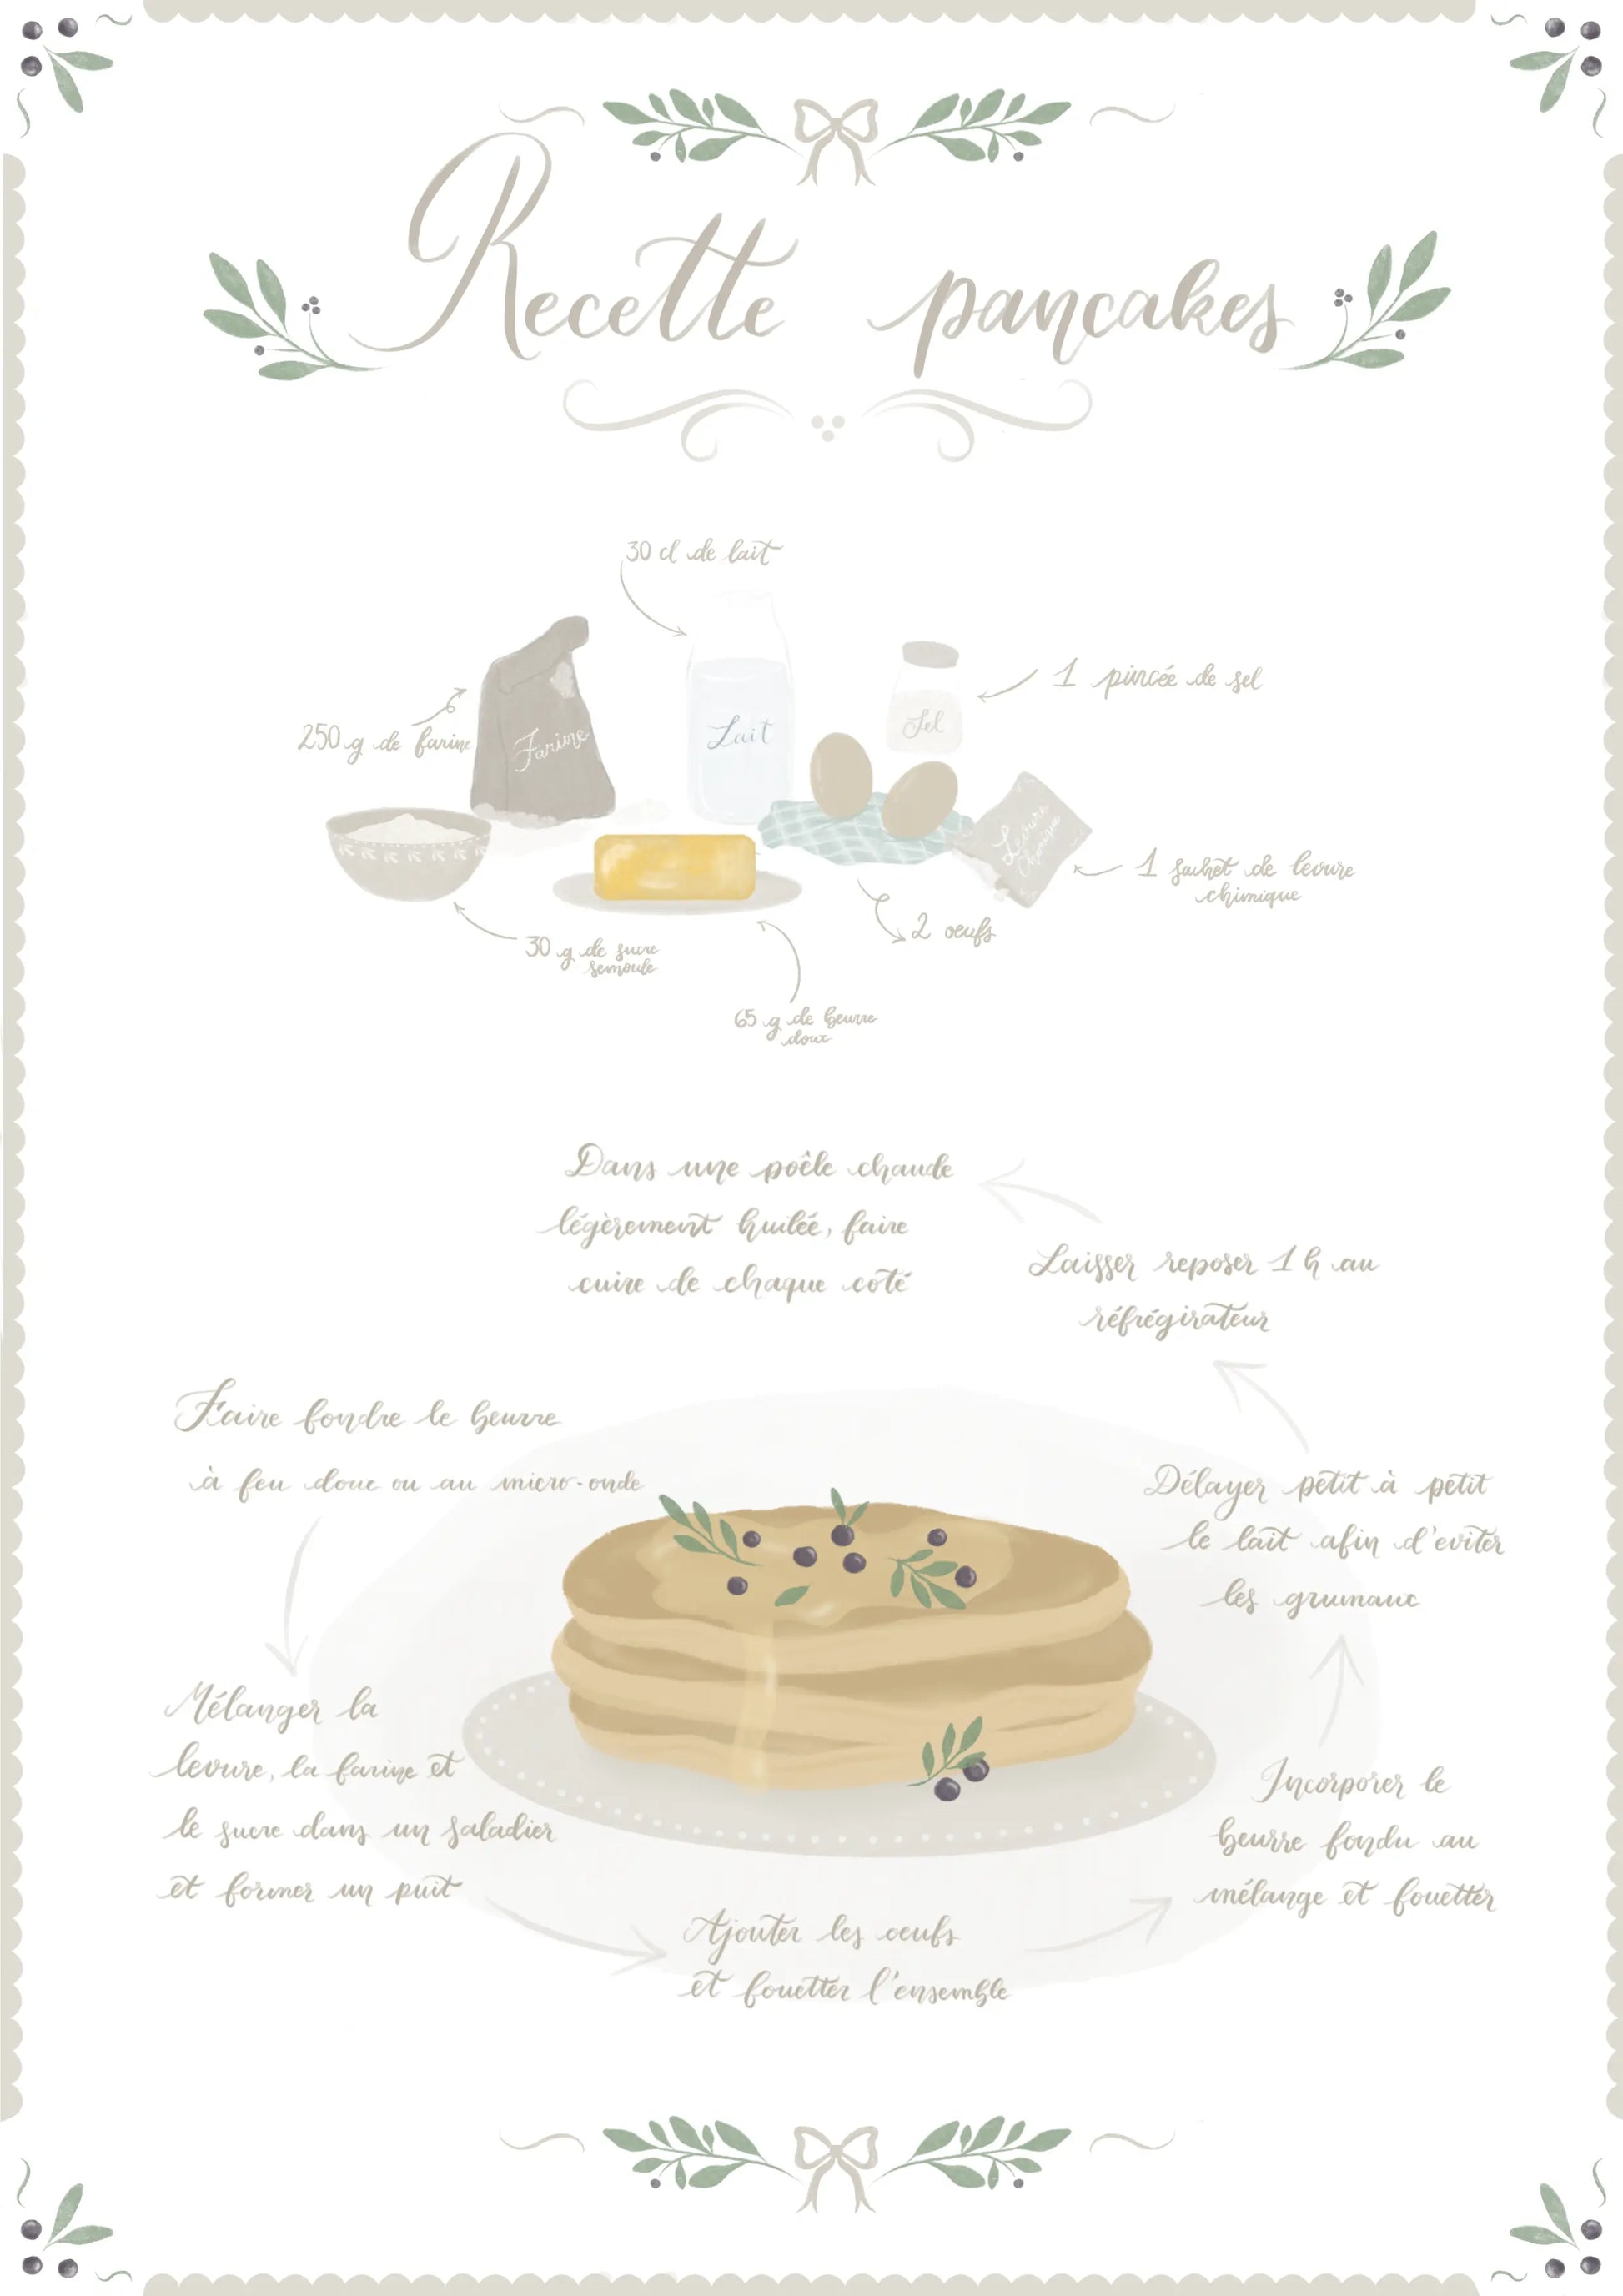 Recette pancakes
30 cl de lait
1 pincée de sel
250 g de farine
Farine
Lait
Sel
Levure
chimique
1 sachet de levure
chimique
2 oeufs
30 g de sucre
semoule
65 g de beurre
doux
Dans une poêle chaude
légèrement huilée, faire
cuire de chaque coté
Laisser reposer 1 h au
réfrégirateur
Faire fondre le beurre
à feu doux ou au micro-onde
Délayer petit à petit
le lait afin d'eviter
les grumaux
Mélanger la
levure, la farine et
le sucre dans un saladier
et former un puit
Incorporer le
beurre fondu au
mélange et fouetter
Ajouter les oeufs
et fouetter l'ensemble